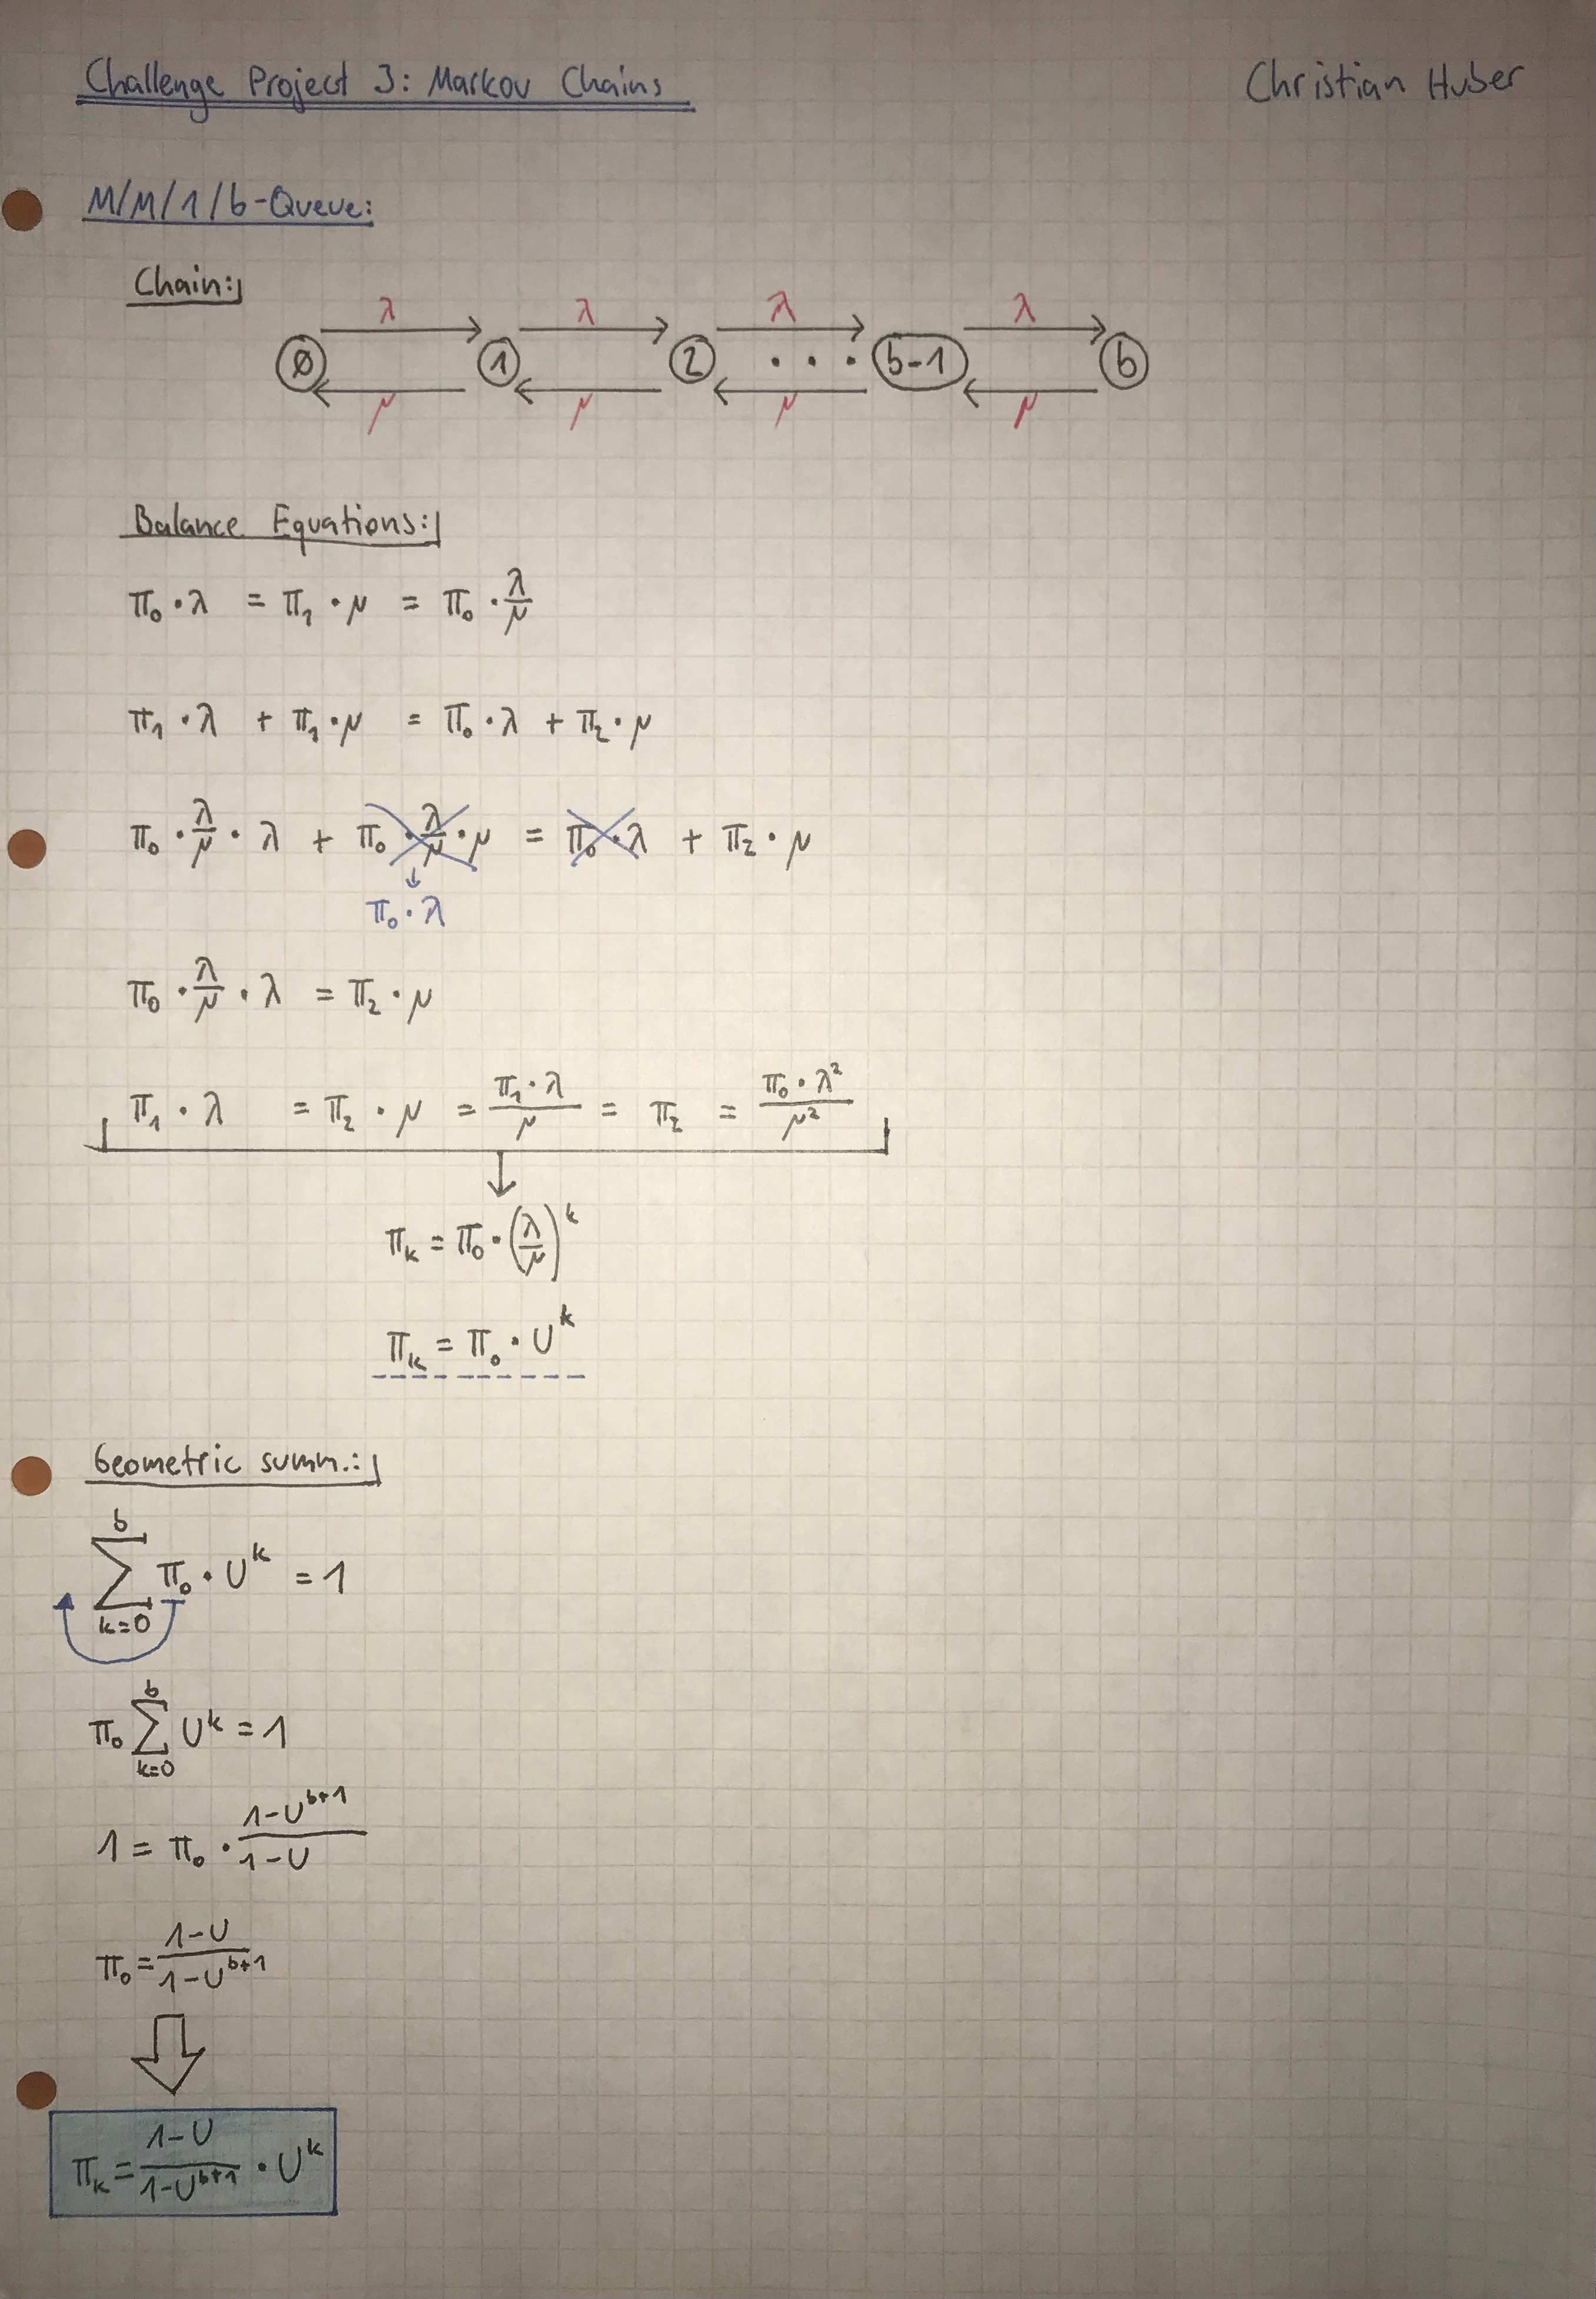 Challenge Project 3: Markov Chains
Christian Huber
M/M/1/b-Queue:
Chain:
λ λ λ λ
0 1 2 . . . b-1 b
μ μ μ μ
Balance Equations:
π₀ · λ = π₁ · μ = π₀ · λ/μ
π₁ · λ + π₁ · μ = π₀ · λ + π₂ · μ
π₀ · λ/μ · λ + π₀ · λ/μ · μ = π₀ · λ + π₂ · μ
π₀ · λ
π₀ · λ/μ · λ = π₂ · μ
π₁ · λ = π₂ · μ = π₁ · λ/μ = π₂ = π₀ · λ²/μ²
πₖ = π₀ · (λ/μ)ᵏ
πₖ = π₀ · Uᵏ
Geometric summ.:
∑ₖ₌₀ᵇ π₀ · Uᵏ = 1
π₀ ∑ₖ₌₀ᵇ Uᵏ = 1
1 = π₀ · (1-Uᵇ⁺¹)/(1-U)
π₀ = (1-U)/(1-Uᵇ⁺¹)
πₖ = (1-U)/(1-Uᵇ⁺¹) · Uᵏ